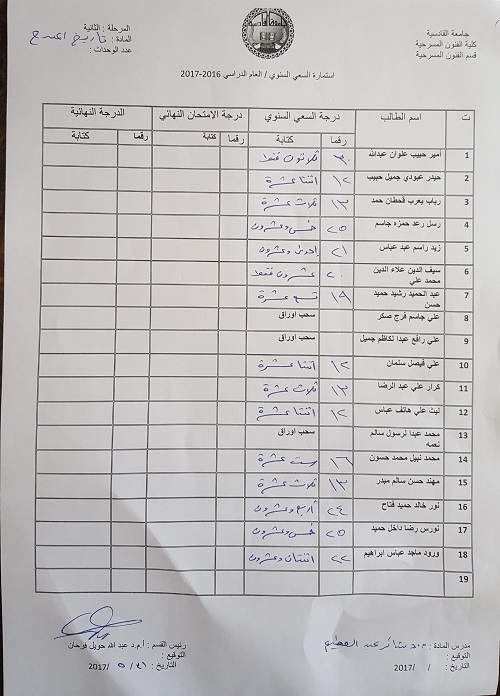 جامعة القادسية
كلية الفنون المسرحية
قسم الفنون المسرحية
المرحلة : الثانية
المادة : تاريخ المسرح
عدد الوحدات :
استمارة السعي السنوي / العام الدراسي 2016-2017
ت اسم الطالب درجة السعي السنوي درجة الامتحان النهائي الدرجة النهائية
رقما كتابة رقما كتابة رقما كتابة
1 امير حبيب علوان عبدالله ٣٠ ثلاثون فقط
2 حيدر عبودي جميل حبيب ١٢ اثنتا عشرة
3 رباب يعرب قحطان حمد ١٣ ثلاث عشرة
4 رسل رعد حمزه جاسم ٢٥ خمس وعشرون
5 زيد راسم عبد عباس ٢١ إحدى وعشرون
6 سيف الدين علاء الدين محمد علي ٢٠ عشرون فقط
7 عبد الحميد رشيد حميد حسن ١٩ تسع عشرة
8 علي جاسم فرج صكر سحب اوراق
9 علي رافع عبدا لكاظم جميل سحب اوراق
10 علي فيصل سلمان ١٢ اثنتا عشرة
11 كرار علي عبد الرضا ١٣ ثلاث عشرة
12 ليث علي هاتف عباس ١٢ اثنتا عشرة
13 محمد عبدا لرسول سالم نعمه سحب اوراق
14 محمد نبيل محمد حسون ١٦ ست عشرة
15 مهند حسن سالم ميدر ١٣ ثلاث عشرة
16 نور خالد حميد فتاح ٢٤ أربع وعشرون
17 نورس رضا داخل حميد ٢٥ خمس وعشرون
18 ورود ماجد عباس ابراهيم ٢٢ اثنتان وعشرون
19
مدرس المادة : م.د بشائر عبد العظيم
التوقيع :
التاريخ : / / 2017
رئيس القسم : أ.م.د عبد الله حويل فرحان
التوقيع :
التاريخ : ٢١ / ٥ /2017